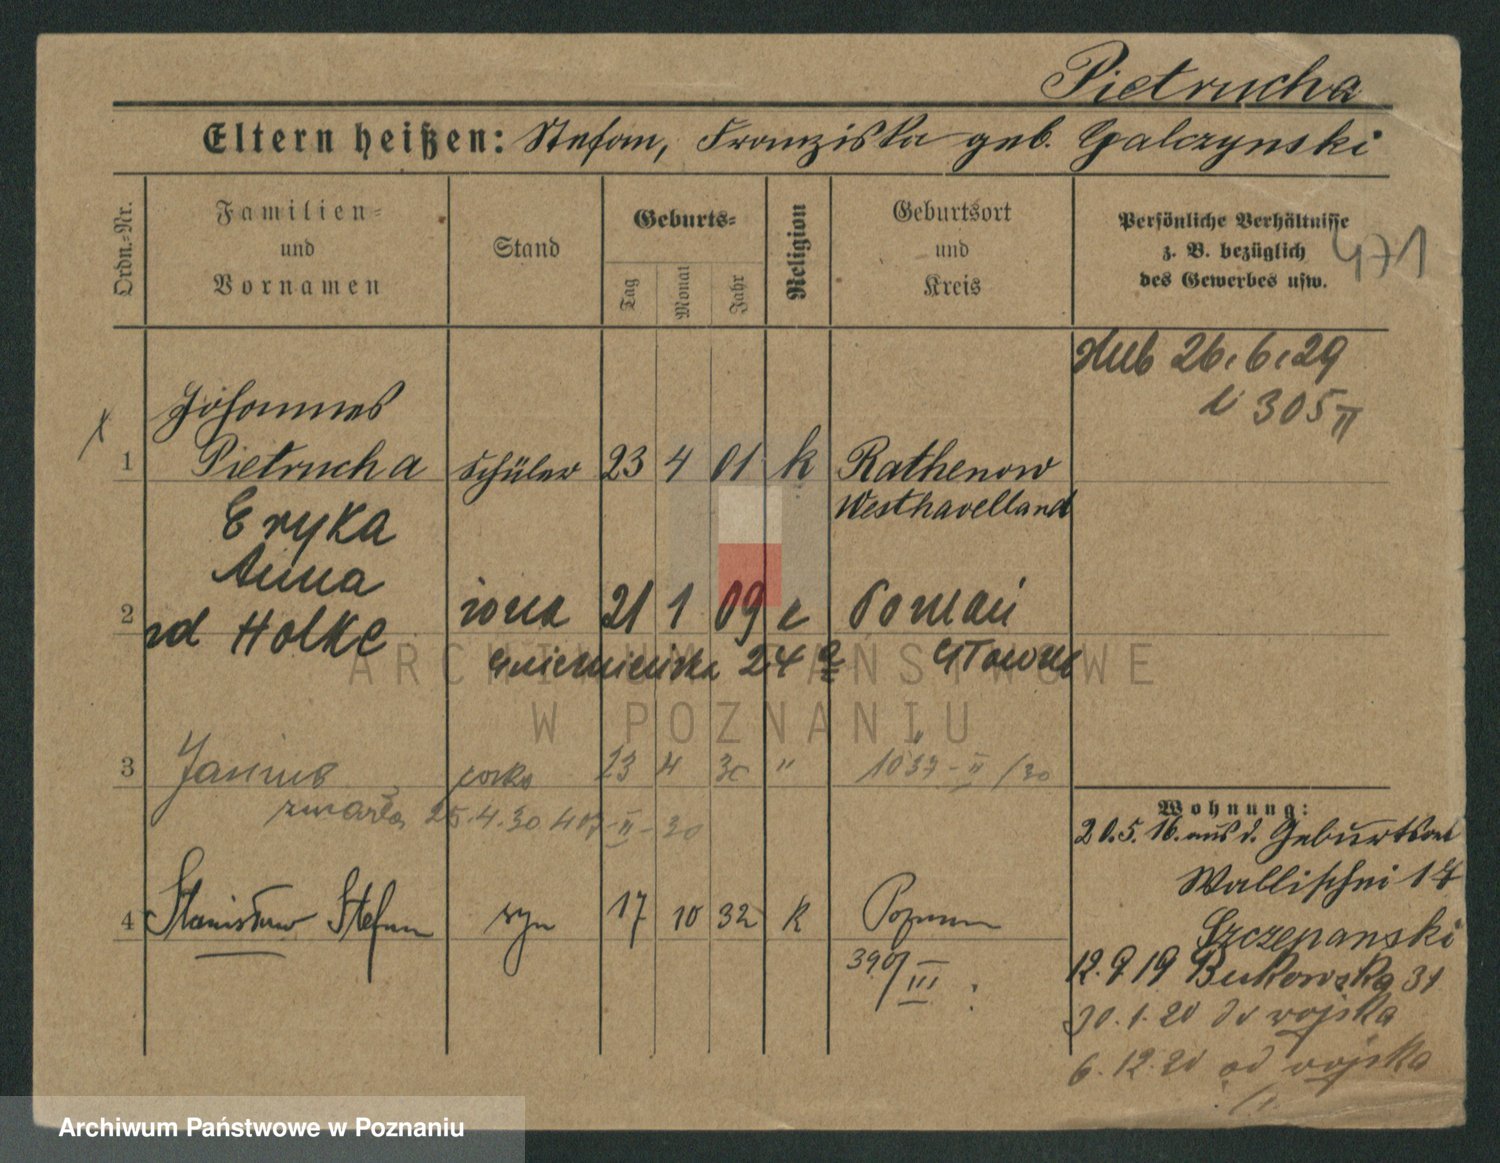 Pietrucha
Eltern heißen: Stefan, Franziska geb. Galczynski
Ordn.-Nr.
Familien-
und
Vornamen
Stand
Geburts-
Tag
Monat
Jahr
Religion
Geburtsort
und
Kreis
Persönliche Verhältnisse
z. B. bezüglich
des Gewerbes usw.
471
26.6.29
305 II
Johannes
1 Pietrucha Schüler 23 4 01 k Rathenow
Westhavelland
Eryka
Anna
2 żona 21 1 09 e Poznań
zd Holke
24 Głowno
3 Janina córka 23 4 30 " 1037-II/30
zmarła 25.4.30 407-II-30
4 Stanisław Stefan syn 17 10 32 k Poznań
390/III
Wohnung:
20.5.16. aus d. Geburtsort
Wallischei 17
Szczepanski
12.9 19 Bukowska 31
30.1.20 do wojska
6.12.20 od wojska
ARCHIWUM PAŃSTWOWE
W POZNANIU
Archiwum Państwowe w Poznaniu